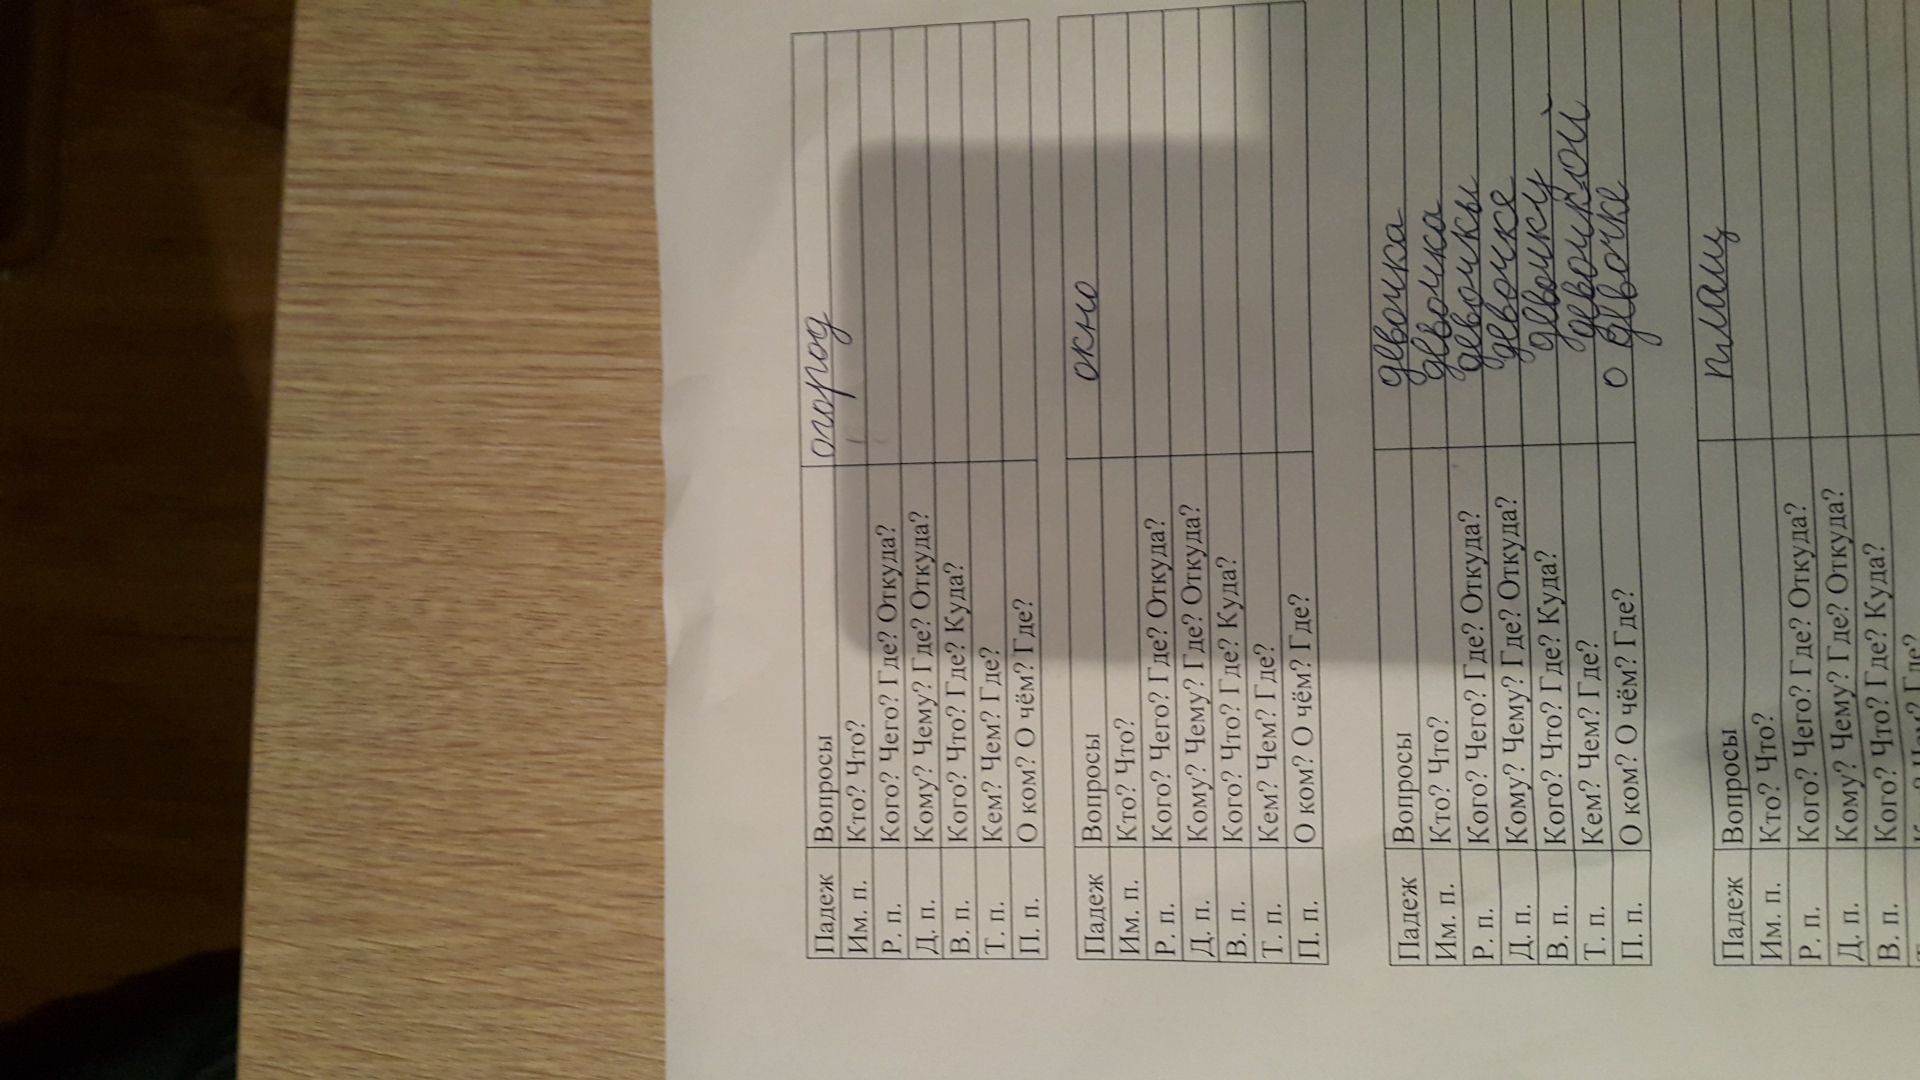 Падеж Вопросы огород
Им. п. Кто? Что?
Р. п. Кого? Чего? Где? Откуда?
Д. п. Кому? Чему? Где? Откуда?
В. п. Кого? Что? Где? Куда?
Т. п. Кем? Чем? Где?
П. п. О ком? О чём? Где?
Падеж Вопросы окно
Им. п. Кто? Что?
Р. п. Кого? Чего? Где? Откуда?
Д. п. Кому? Чему? Где? Откуда?
В. п. Кого? Что? Где? Куда?
Т. п. Кем? Чем? Где?
П. п. О ком? О чём? Где?
Падеж Вопросы девочка
Им. п. Кто? Что? девочка
Р. п. Кого? Чего? Где? Откуда? девочкы
Д. п. Кому? Чему? Где? Откуда? девочке
В. п. Кого? Что? Где? Куда? девочку
Т. п. Кем? Чем? Где? девочкой
П. п. О ком? О чём? Где? о двочке
Падеж Вопросы плащ
Им. п. Кто? Что?
Р. п. Кого? Чего? Где? Откуда?
Д. п. Кому? Чему? Где? Откуда?
В. п. Кого? Что? Где? Куда?